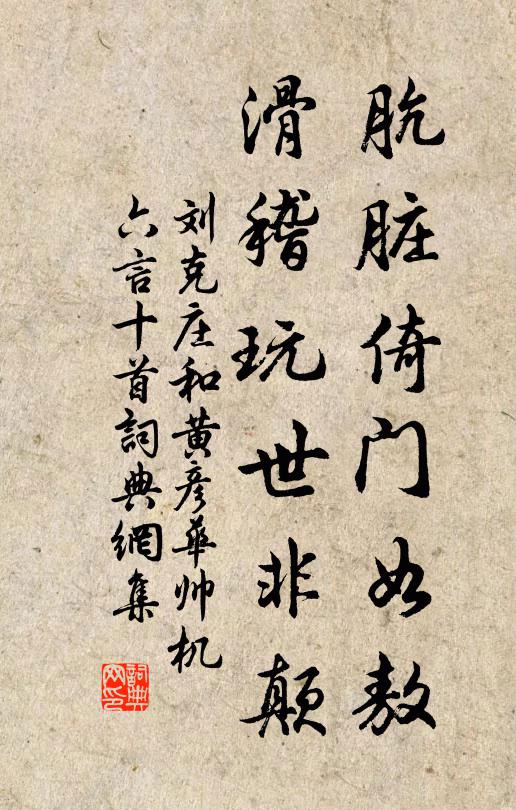 肮脏倚门如敖
滑稽玩世非颠
刘克庄和黄彦華帅机
六言十首詞典網集
詞典网印